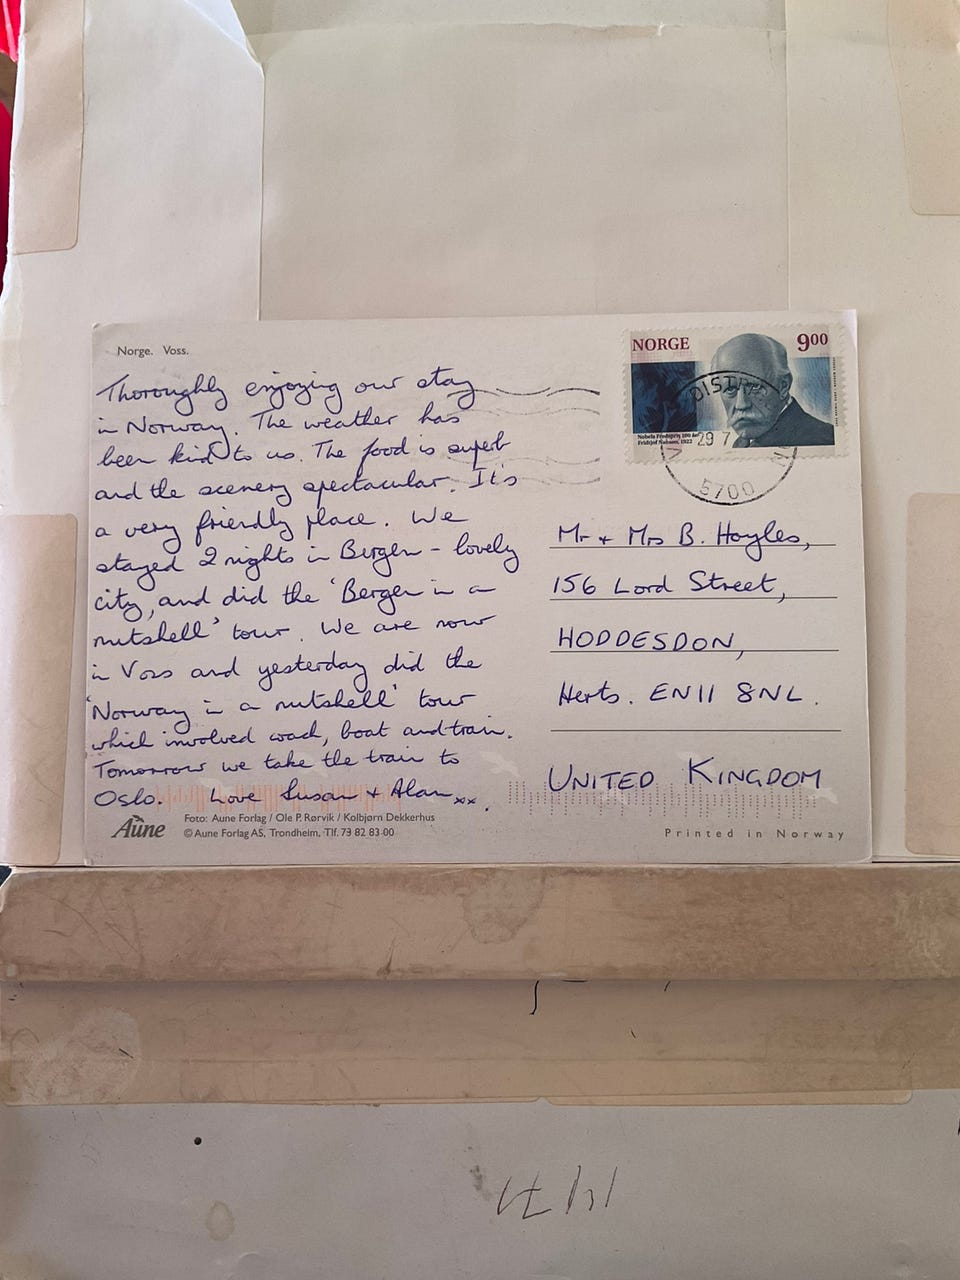 Norge. Voss.
Thoroughly enjoying our stay
in Norway. The weather has
been kind to us. The food is superb
and the scenery spectacular. It's
a very friendly place. We
stayed 2 nights in Bergen - lovely
city, and did the 'Bergen in a
nutshell' tour. We are now
in Voss and yesterday did the
'Norway in a nutshell' tour
which involved coach, boat and train.
Tomorrow we take the train to
Oslo. Love Susan + Alan xx.
Aune
Foto: Aune Forlag / Ole P. Rørvik / Kolbjørn Dekkerhus
© Aune Forlag AS, Trondheim, Tlf. 73 82 83 00
NORGE 9⁰⁰
Nobels Fredspris 100 år
Fridtjof Nansen, 1922
29 7
5700
Mr + Mrs B. Hoyles,
156 Lord Street,
HODDESDON,
Herts. EN11 8NL.
UNITED KINGDOM
Printed in Norway